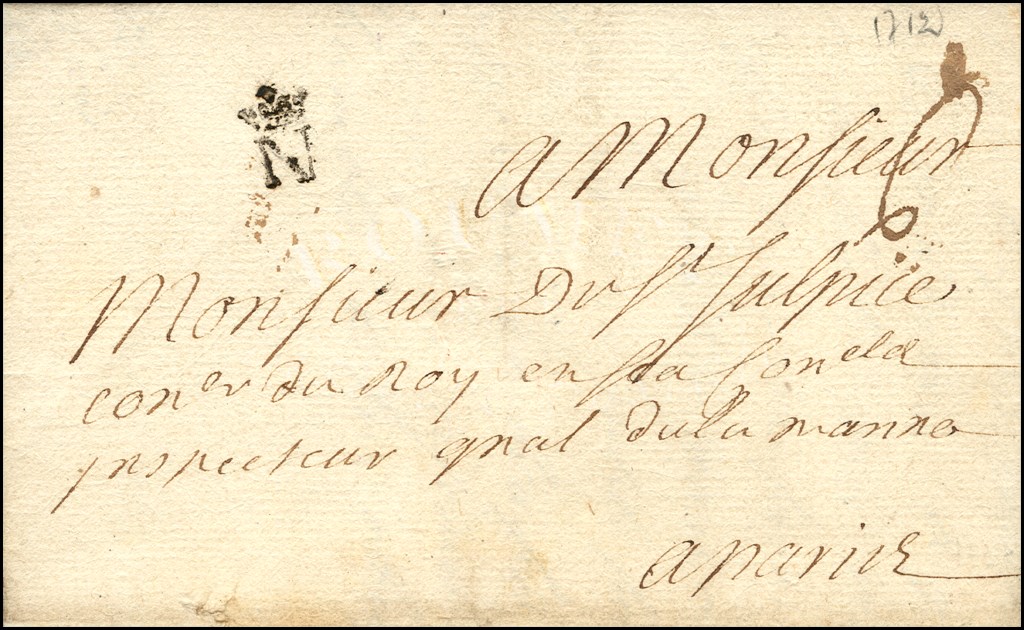 1712
N
6
a Monsieur
Monsieur De St Sulpice
coner du Roy en sa
inspecteur gnal de la
a paris